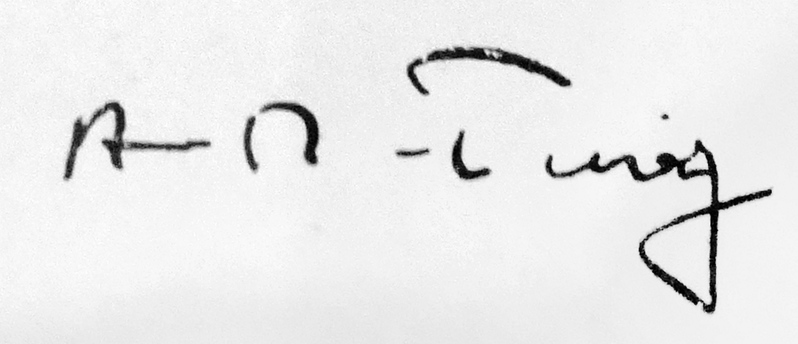 A M Turing